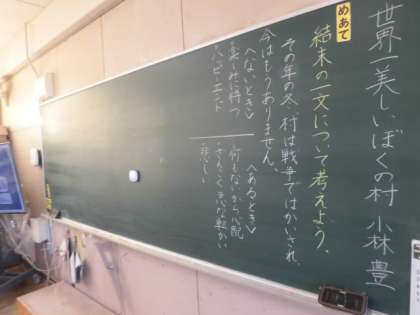 世界一美しいぼくの村 小林豊
めあて
結末の一文について考えよう。
その年の冬、村は戦争ではかいされ、
今はもうありません。
〈ないとき〉
・楽しみに待つ
・ハッピーエンド
〈あるとき〉
・何もないから心配
・悲しい